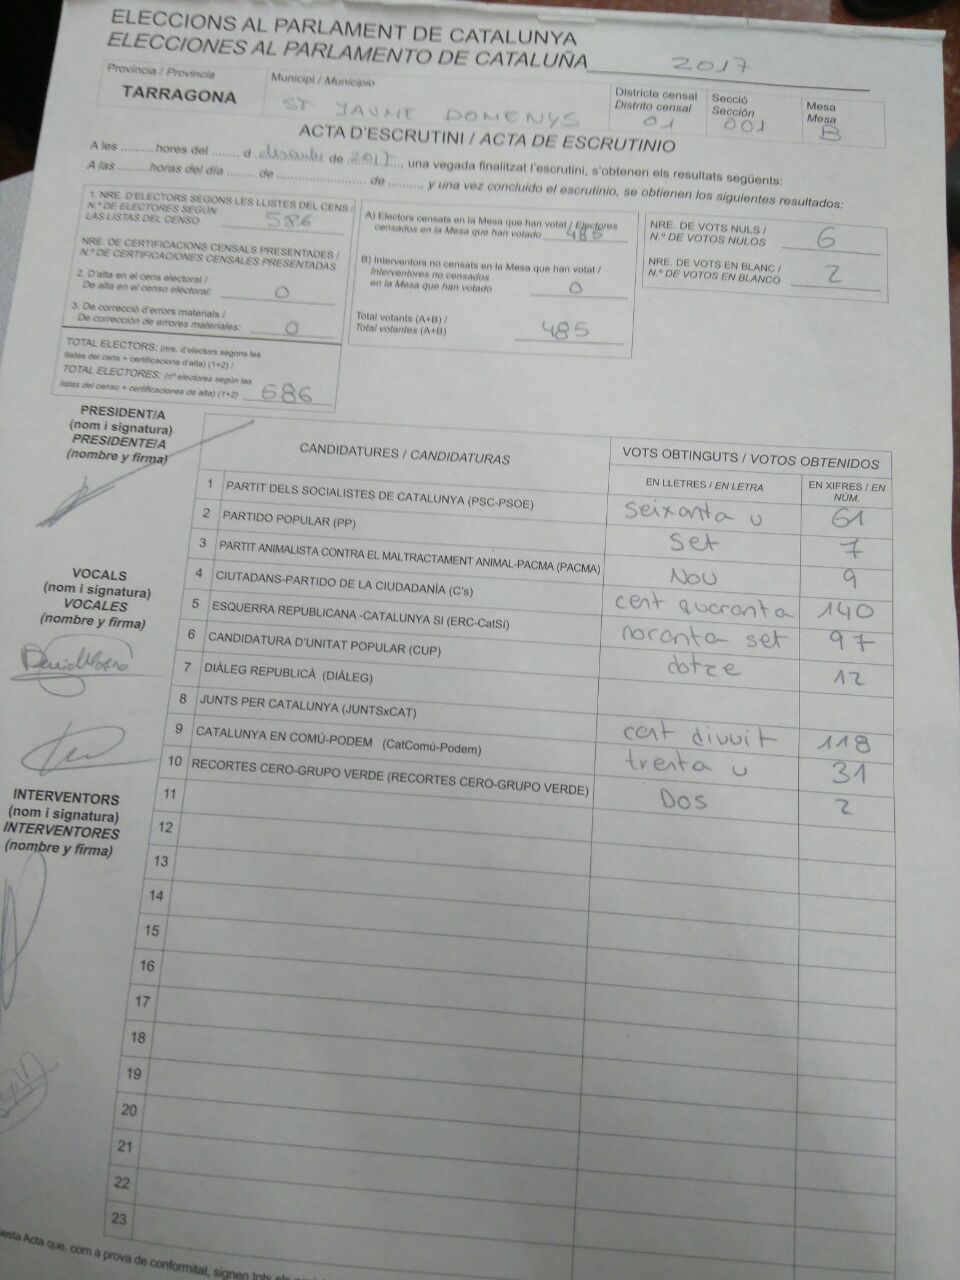 ELECCIONS AL PARLAMENT DE CATALUNYA
ELECCIONES AL PARLAMENTO DE CATALUÑA 2017
Província / Provincia
TARRAGONA
Municipi / Municipio
ST. JAUME DOMENYS
Districte censal
Distrito censal
01
Secció
Sección
001
Mesa
Mesa
B
ACTA D'ESCRUTINI / ACTA DE ESCRUTINIO
A les .........hores del ........ d de 2017, una vegada finalitzat l'escrutini, s'obtenen els resultats següents:
A las .........horas del día ........ de .......................... de ........., y una vez concluido el escrutinio, se obtienen los siguientes resultados:
1. NRE. D'ELECTORS SEGONS LES LLISTES DEL CENS /
N.º DE ELECTORES SEGÚN
LAS LISTAS DEL CENSO 586
NRE. DE CERTIFICACIONS CENSALS PRESENTADES /
N.º DE CERTIFICACIONES CENSALES PRESENTADAS
2. D'alta en el cens electoral /
De alta en el censo electoral: 0
3. De correcció d'errors materials /
De corrección de errores materiales: 0
TOTAL ELECTORS: (nre. d'electors segons les
llistes del cens + certificacions d'alta) (1+2) /
TOTAL ELECTORES: (nº electores según las
listas del censo + certificaciones de alta) (1+2) 586
A) Electors censats en la Mesa que han votat / Electores
censados en la Mesa que han votado 485
B) Interventors no censats en la Mesa que han votat /
Interventores no censados
en la Mesa que han votado 0
Total votants (A+B) /
Total votantes (A+B) 485
NRE. DE VOTS NULS /
N.º DE VOTOS NULOS 6
NRE. DE VOTS EN BLANC /
N.º DE VOTOS EN BLANCO 2
PRESIDENT/A
(nom i signatura)
PRESIDENTE/A
(nombre y firma)
VOCALS
(nom i signatura)
VOCALES
(nombre y firma)
INTERVENTORS
(nom i signatura)
INTERVENTORES
(nombre y firma)
CANDIDATURES / CANDIDATURAS
VOTS OBTINGUTS / VOTOS OBTENIDOS
EN LLETRES / EN LETRA
EN XIFRES / EN NÚM.
1 PARTIT DELS SOCIALISTES DE CATALUNYA (PSC-PSOE) seixanta u 61
2 PARTIDO POPULAR (PP) set 7
3 PARTIT ANIMALISTA CONTRA EL MALTRACTAMENT ANIMAL-PACMA (PACMA) Nou 9
4 CIUTADANS-PARTIDO DE LA CIUDADANÍA (C's) cent quaranta 140
5 ESQUERRA REPUBLICANA -CATALUNYA SI (ERC-CatSí) noranta set 97
6 CANDIDATURA D'UNITAT POPULAR (CUP) dotze 12
7 DIÀLEG REPUBLICÀ (DIÀLEG)
8 JUNTS PER CATALUNYA (JUNTSxCAT) cent divuit 118
9 CATALUNYA EN COMÚ-PODEM (CatComú-Podem) trenta u 31
10 RECORTES CERO-GRUPO VERDE (RECORTES CERO-GRUPO VERDE) Dos 2
11
12
13
14
15
16
17
18
19
20
21
22
23
esta Acta que, com a prova de conformitat, signen tots els